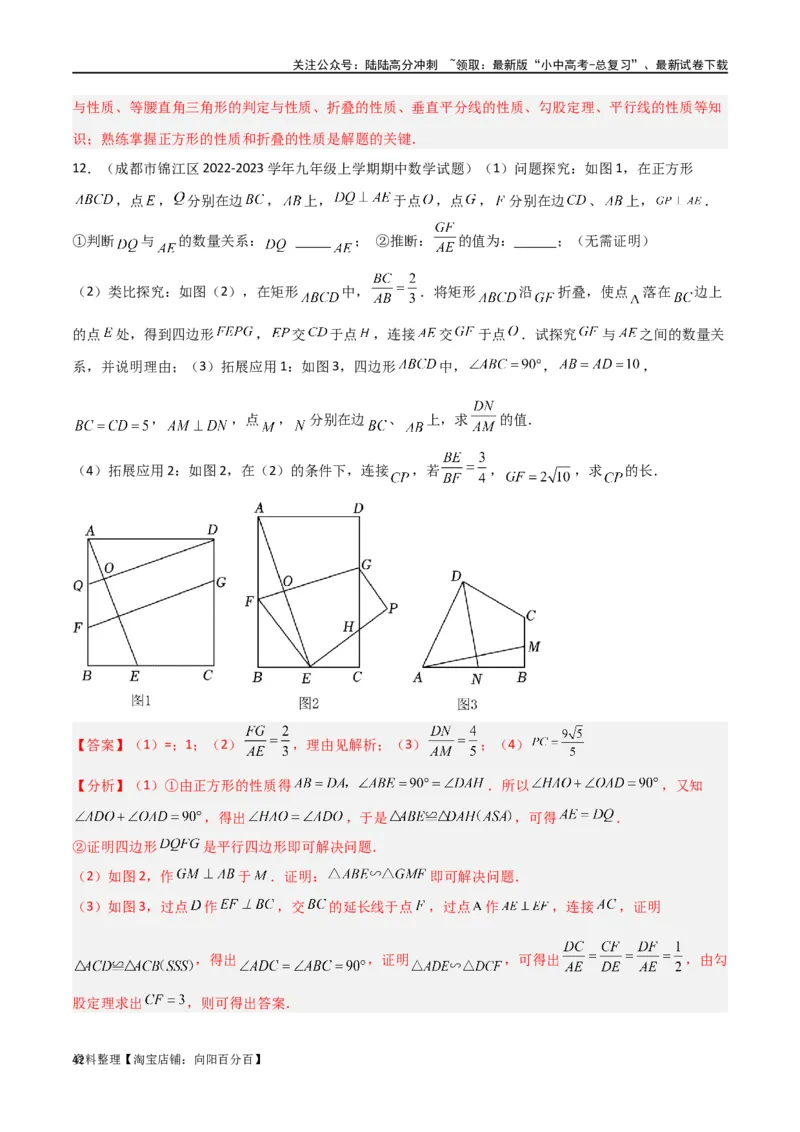 关注公众号：陆陆高分冲刺　~领取：最新版“小中高考-总复习”、最新试卷下载
与性质、等腰直角三角形的判定与性质、折叠的性质、垂直平分线的性质、勾股定理、平行线的性质等知
识；熟练掌握正方形的性质和折叠的性质是解题的关键．
12．（成都市锦江区 2022-2023 学年九年级上学期期中数学试题）（1）问题探究：如图 1，在正方形
ABCD，点 E，Q 分别在边 BC，AB 上，DQ⊥AE 于点 O，点 G，F 分别在边 CD、AB 上，GP⊥AE．
①判断 DQ 与 AE 的数量关系：DQ ＿＿＿ AE； ②推断：GF/AE 的值为：＿＿＿；（无需证明）
（2）类比探究：如图（2），在矩形 ABCD 中，BC/AB = 2/3．将矩形 ABCD 沿 GF 折叠，使点 A 落在 BC 边上
的点 E 处，得到四边形 FEPG，EP 交 CD 于点 H，连接 AE 交 GF 于点 O．试探究 GF 与 AE 之间的数量关
系，并说明理由；（3）拓展应用 1：如图 3，四边形 ABCD 中，∠ABC = 90°，AB = AD = 10，
BC = CD = 5，AM⊥DN，点 M，N 分别在边 BC、AB 上，求 DN/AM 的值．
（4）拓展应用 2：如图 2，在（2）的条件下，连接 CP，若 BE/BF = 3/4，GF = 2√10，求 CP 的长．
A D O Q G F B E C 图1
A D G O F P H B E C 图2
D C M A N B 图3
【答案】（1）=；1；（2）FG/AE = 2/3，理由见解析；（3）DN/AM = 4/5；（4）PC = 9√5/5
【分析】（1）①由正方形的性质得 AB = DA，∠ABE = 90° = ∠DAH．所以 ∠HAO + ∠OAD = 90°，又知
∠ADO + ∠OAD = 90°，得出 ∠HAO = ∠ADO，于是 △ABE≌△DAH(ASA)，可得 AE = DQ．
②证明四边形 DQFG 是平行四边形即可解决问题．
（2）如图 2，作 GM⊥AB 于 M．证明：△ABE∽△GMF 即可解决问题．
（3）如图 3，过点 D 作 EF⊥BC，交 BC 的延长线于点 F，过点 A 作 AE⊥EF，连接 AC，证明
△ACD≌△ACB(SSS)，得出 ∠ADC = ∠ABC = 90°，证明 △ADE∽△DCF，可得出 DC/AE = CF/DE = DF/AE = 1/2，由勾
股定理求出 CF = 3，则可得出答案．
42资料整理【淘宝店铺：向阳百分百】